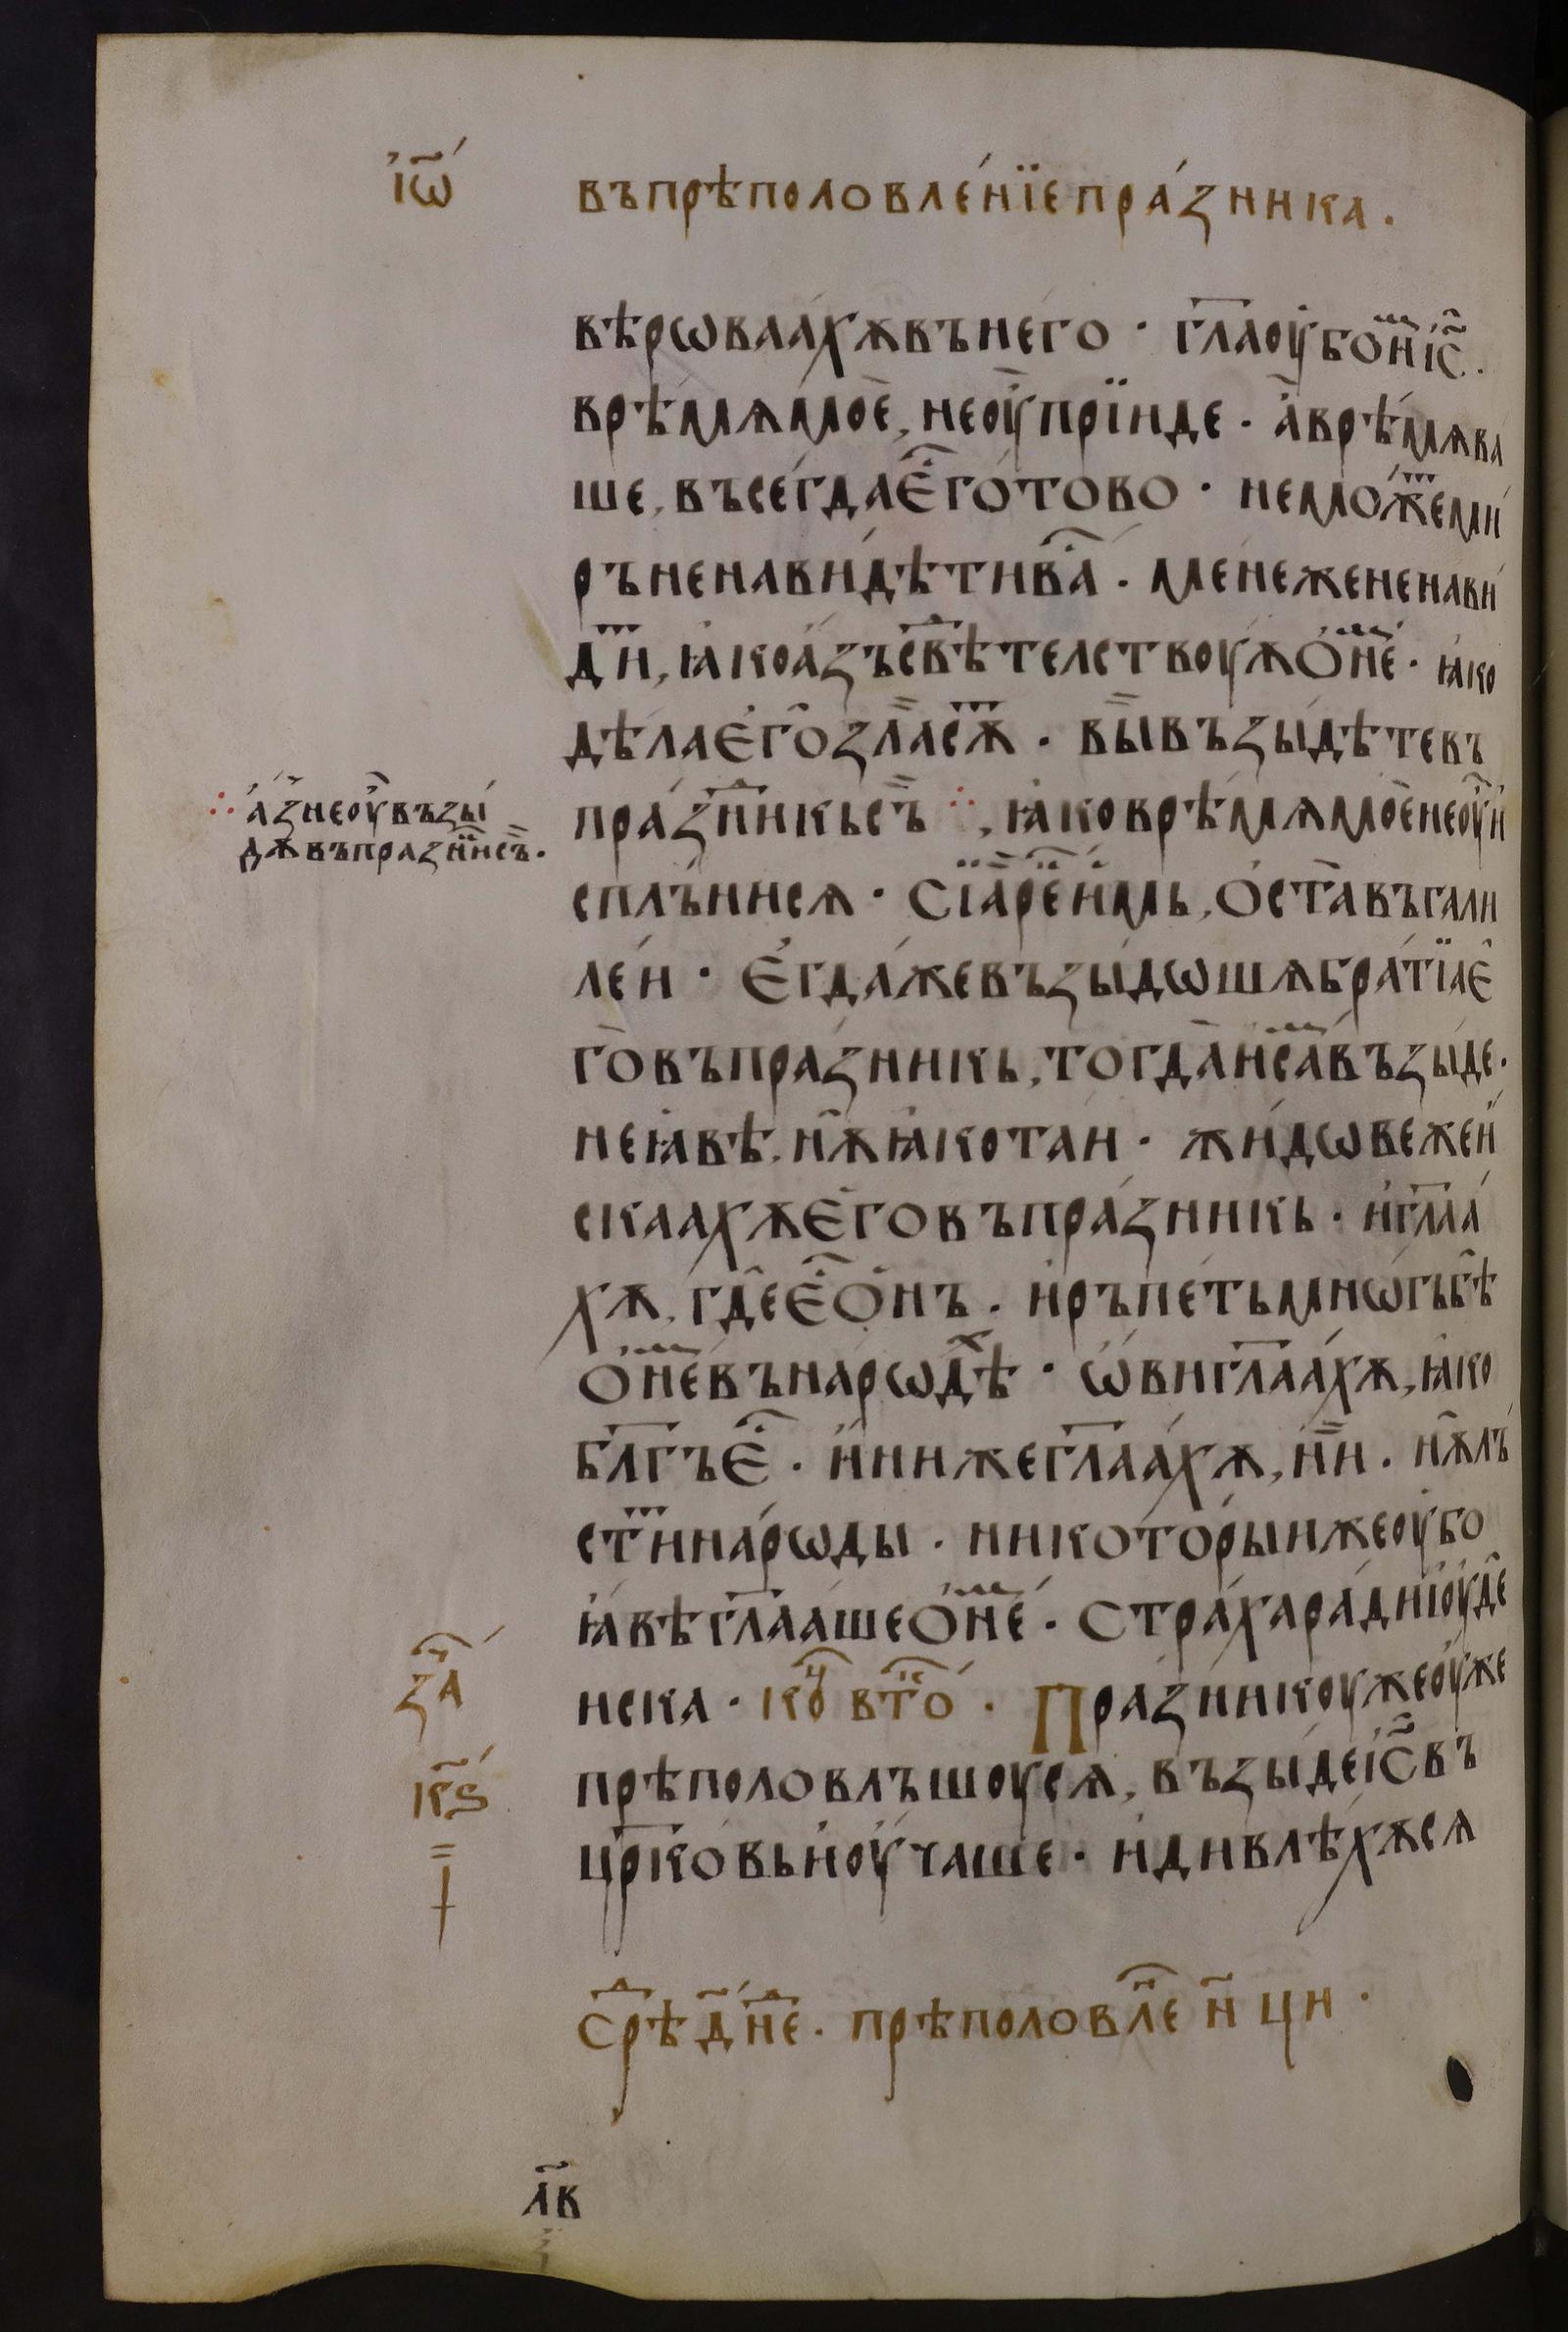 і҆ѡ҃
въпрѣполовле́нїепра́зника.
вѣрѡваахѫвънего · гл҃аоубоим іс҃.
врѣмѧмое, неоуприиде · а҆врѣмѧва
ше, въсегдаѐ гото́во · неможе миⷬ
ръненави́дѣтива · мене́женена́ви
ди, ꙗ҆коа҆зъсвѣтелствоуѫѻне · ꙗ҆ко
дѣлаѐго̀ зласѫ · выⷡъзы́дѣтевъ
пра́зникьсъ ჻ , ꙗ҆коврѣмѧмоенеоуи
сплънисѧ · Сїаре́имь, ѡставьгали
ле́и · Єгда́жевъзы́дѡшѧбра́тїаѐ
говъпра́зникь, тогдаисавъзы́де ·
неꙗ҆вѣ, нѫꙗ҆котаи · жи́дѡвежеи
скаахѫѐговъпра́зникь · и҆гл҃аа
хѫ, гдеѐо́нъ · и҆ръпе́тьмнѡгьбѣ
ѻневънарѡдѣ · ѡ҆вигл҃аахѫ, ꙗ҆ко
бл҃гъѐ · и҆нижегл҃аахѫ, ни · нѫлъ
стинарѡды · никоторыижеоубо
ꙗ҆вѣгл҃аашеѻне · Стра́хара́диі҆оуде
иска · ко вто · Пра́зникоужеоуже
прѣполовлъшоусѧ, възы́деіс҃въ
цр҃ковьи҆оучаше · и҆дивлѣхѫсѧ
჻ а҆з неоувъзы
дѫвъпразнисъ.
за
к҃ѕ
срѣ дне · прѣполовле н ци ·
л҃в